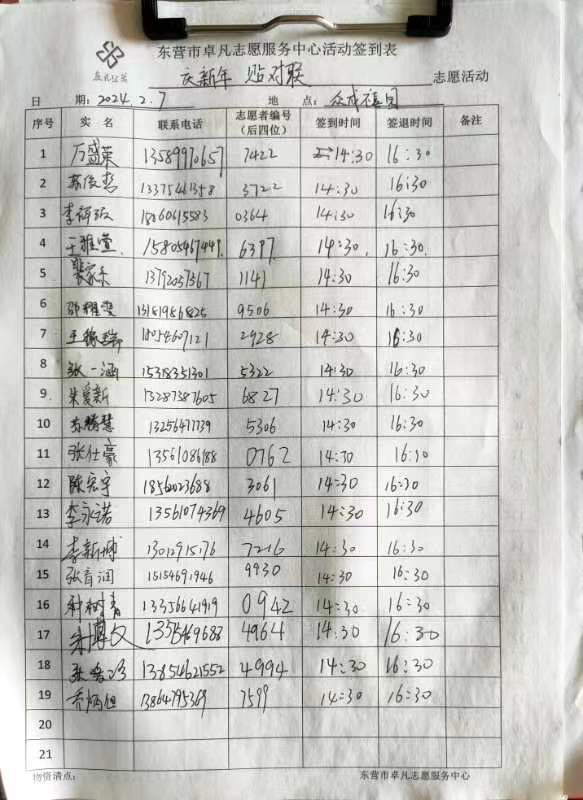 东营市卓凡志愿服务中心活动签到表
庆新年 贴对联 志愿活动
日 期: 2024. 2. 7 地 点:
序号 实 名 联系电话 志愿者编号（后四位） 签到时间 签退时间 备注
1 万盛荣 13589970657 7422 14:30 16:30
2 苏俊哲 3722 14:30 16:30
3 15860615583 0364 14:30 16:30
4 于雅萱 15805467449 6397 14:30 16:30
5 裴家乐 13792057567 1141 14:30 16:30
6 邵耀雯 13181986825 9506 14:30 16:30
7 18054609121 2928 14:30 16:30
8 张一涵 15318351301 5322 14:30 16:30
9 朱爱新 13287387605 6827 14:30 16:30
10 13256477739 5306 14:30 16:30
11 张仕豪 13561086188 0762 14:30 16:30
12 陈宏宇 18562023688 3061 14:30 16:30
13 李永诺 13561074369 4605 14:30 16:30
14 李新博 13012915176 7216 14:30 16:30
15 张育润 15154691946 9930 14:30 16:30
16 13356641919 0942 14:30 16:30
17 4964 14:30 16:30
18 13854621552 4994 14:30 16:30
19 乔炳旭 13864795369 7599 14:30 16:30
20
21
物资清点: 东营市卓凡志愿服务中心